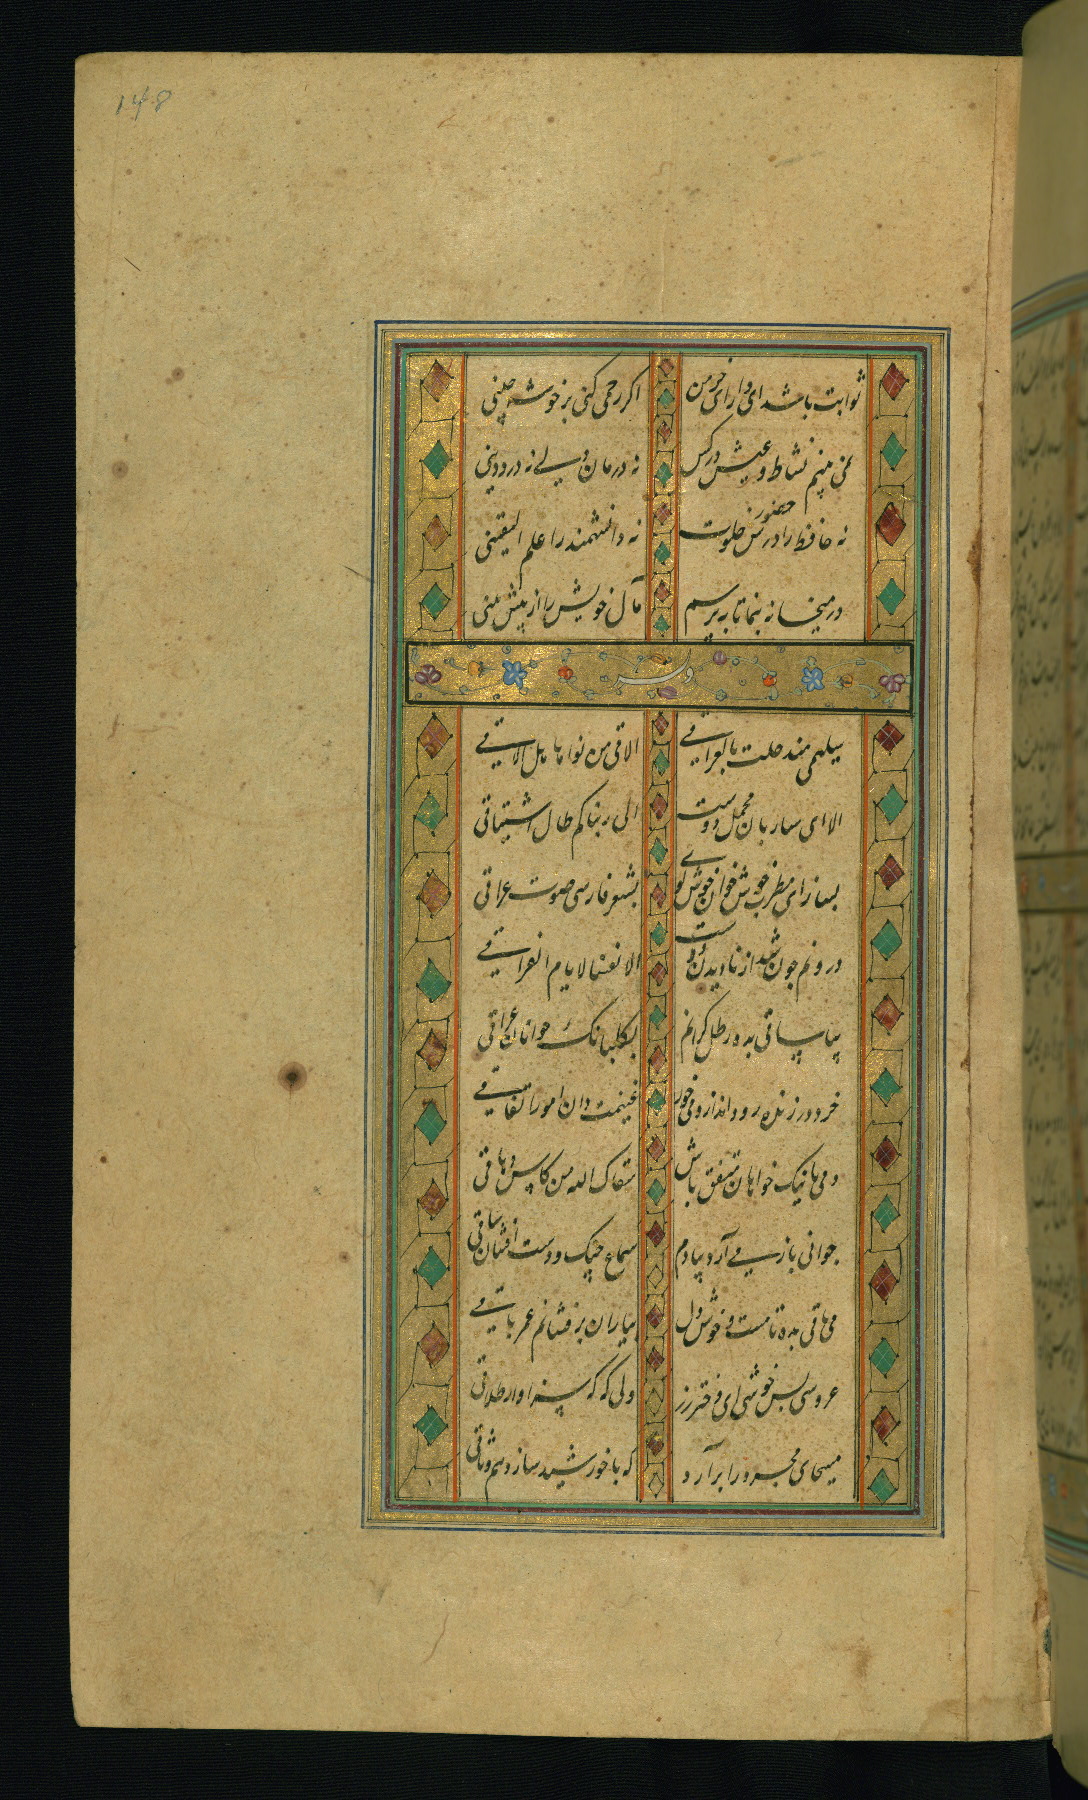 148
ثوابت باشد ای دارای خرمن اگر رحمی کنی بر خوشه چینی
نمی بینم نشاط و عیش در کس نه درمان دلی نه درد دینی
نه حافظ را حضور درس خلوت نه دانشمند را علم الیقینی
در میخانه بنما تا بپرسم مآل خویش را از پیش بینی
وله
سلیمی منذ حلت بالعراقی الاقی من نواها ما الاقی
الا ای ساربان محمل دوست الی رکبانکم طال اشتیاقی
بساز ای مطرب خوش خوان خوش گوی بشعر فارسی صوت عراقی
درونم خون شد از نادیدن دوست الا تعسا لایام الفراقی
بیا ساقی بده رطل گرانم بگلبانک جوانان عراقی
خرد در زنده رود انداز و می خور غنیمت دان امور اتفاقی
دمی با نیک خواهان متفق باش سقاک الله من کاس دهاقی
جوانی باز می آرد بیادم سماع چنک و دست افشان ساقی
می باقی بده تا مست و خوش دل بیاران برفشانم عمر باقی
عروسی بس خوشی ای دختر رز ولی گه گه سزاوار طلاقی
مسیحای مجرد را برآرد که با خورشید سازد هم وثاقی